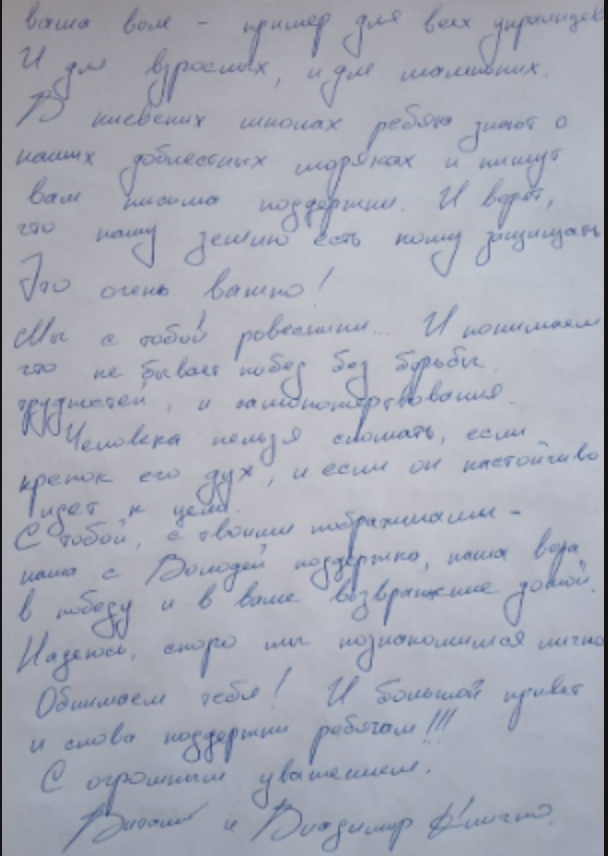 ваша воля - пример для всех украинцев
И для взрослых, и для маленьких.
В киевских школах ребята знают о
наших доблестных моряках и пишут
вам письма поддержки. И верят,
что нашу землю есть кому защищать
Это очень важно!
Мы с тобой ровесники... И понимаем
что не бывает побед без борьбы,
трудностей, и самопожертвования.
Человека нельзя сломать, если
крепок его дух, и если он настойчиво
идет к цели.
С тобой, с твоими побратимами -
наша с Володей поддержка, наша вера
в победу и в ваше возвращение домой.
Надеюсь, скоро мы познакомимся лично
Обнимаем тебя! И большой привет
и слова поддержки ребятам!!!
С огромным уважением,
Виталий и Владимир Кличко.